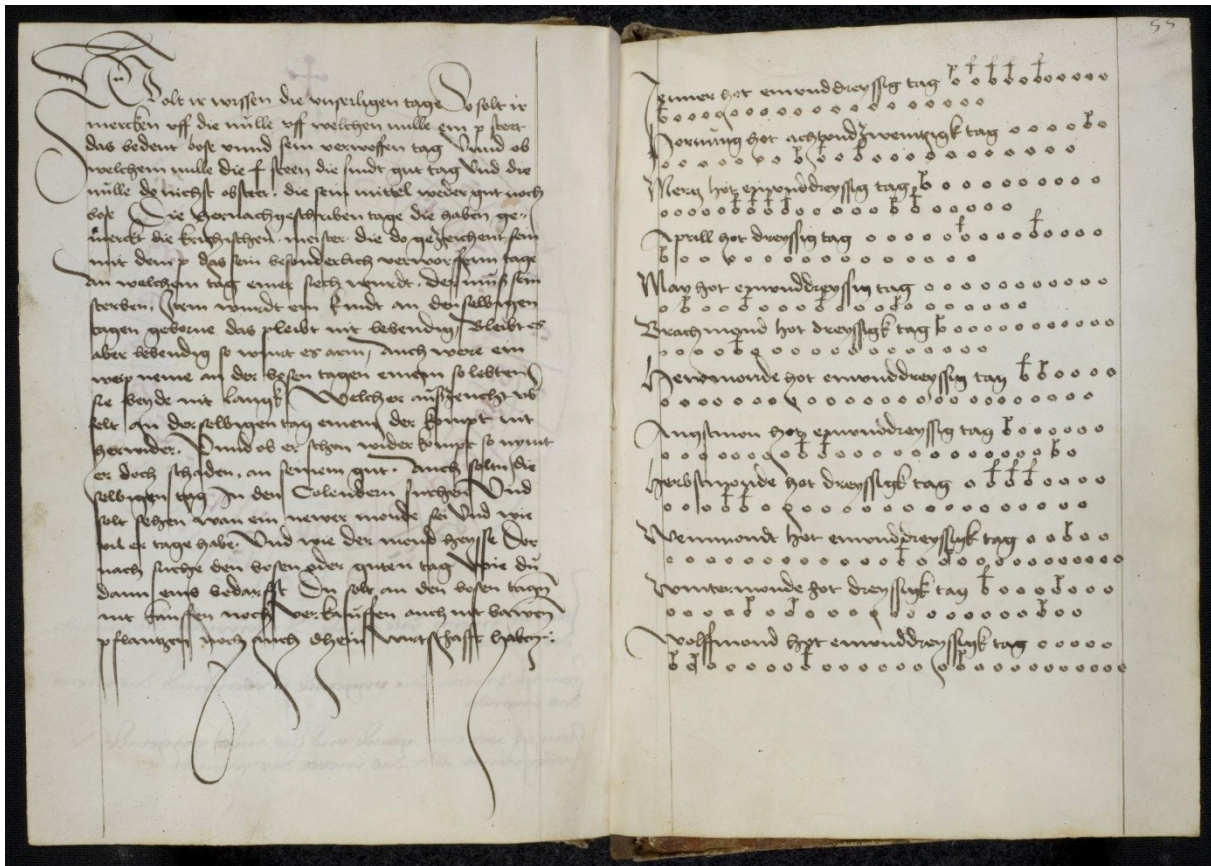 Wolt ir wissen die unseligen tage So solt ir
mercken uff die nulle uff welchen nulle ein p steet
das bedeut bose unnd sein verwoffen tag Unnd ob
welchem nulle die f steen die sindt gut tag Und die
nulle do nichst obsteet. die sein mittel weder gut noch
bose Die hernachgeschriben tage die haben ge-
merckt die krichischen meister die do gezeichent sein
mit dem p das sein besonderlich verworffenn tage
An welchem tag einer siech wurdt. der muß sein
sterben. Item wurdt ein kindt an denselbigen
tagen geborne das pleibt nit lebendig, Bleibt es
aber lebendig so wurt es arm, Auch were ein
weip neme an der bosen tagen einem so lebten
sie beyde nit langk Welcher außzeucht
selt an derselbigen tag einem der kompt nit
herwider. Unnd ob er schon wider kompt so nymt
er doch schaden. an seinem gut. Auch soltu die
selbigen tag In den Colendern suchen Und
solt sehen wan ein newer monde sei Und wie
vil er tage habe. Und wie der mond heysse Dor
nach suche den bosen oder guten tag Wie du
dann eins bedarfft Du solt an den bosen tagen
nit kauffen noch verkauffen auch nit bawen
pflantzen noch auch dhein wirtschafft haben:
55
Jenner hot einunddreyssig tag
Hornung hot achtundzwentzigk tag
Mertz hot einunddreyssig tag
Aprill hot dreyssig tag
May hot einunddreyssig tag
Brachmond hot dreyssigk tag
Hewmonde hot einunddreyssig tag
Augstmon hot einunddreyssig tag
Herbstmonde hot dreyssigk tag
Weinmondt hot einunddreyssigk tag
Wintermonde hot dreyssigk tag
Wolffmond hot einunddreyssigk tag